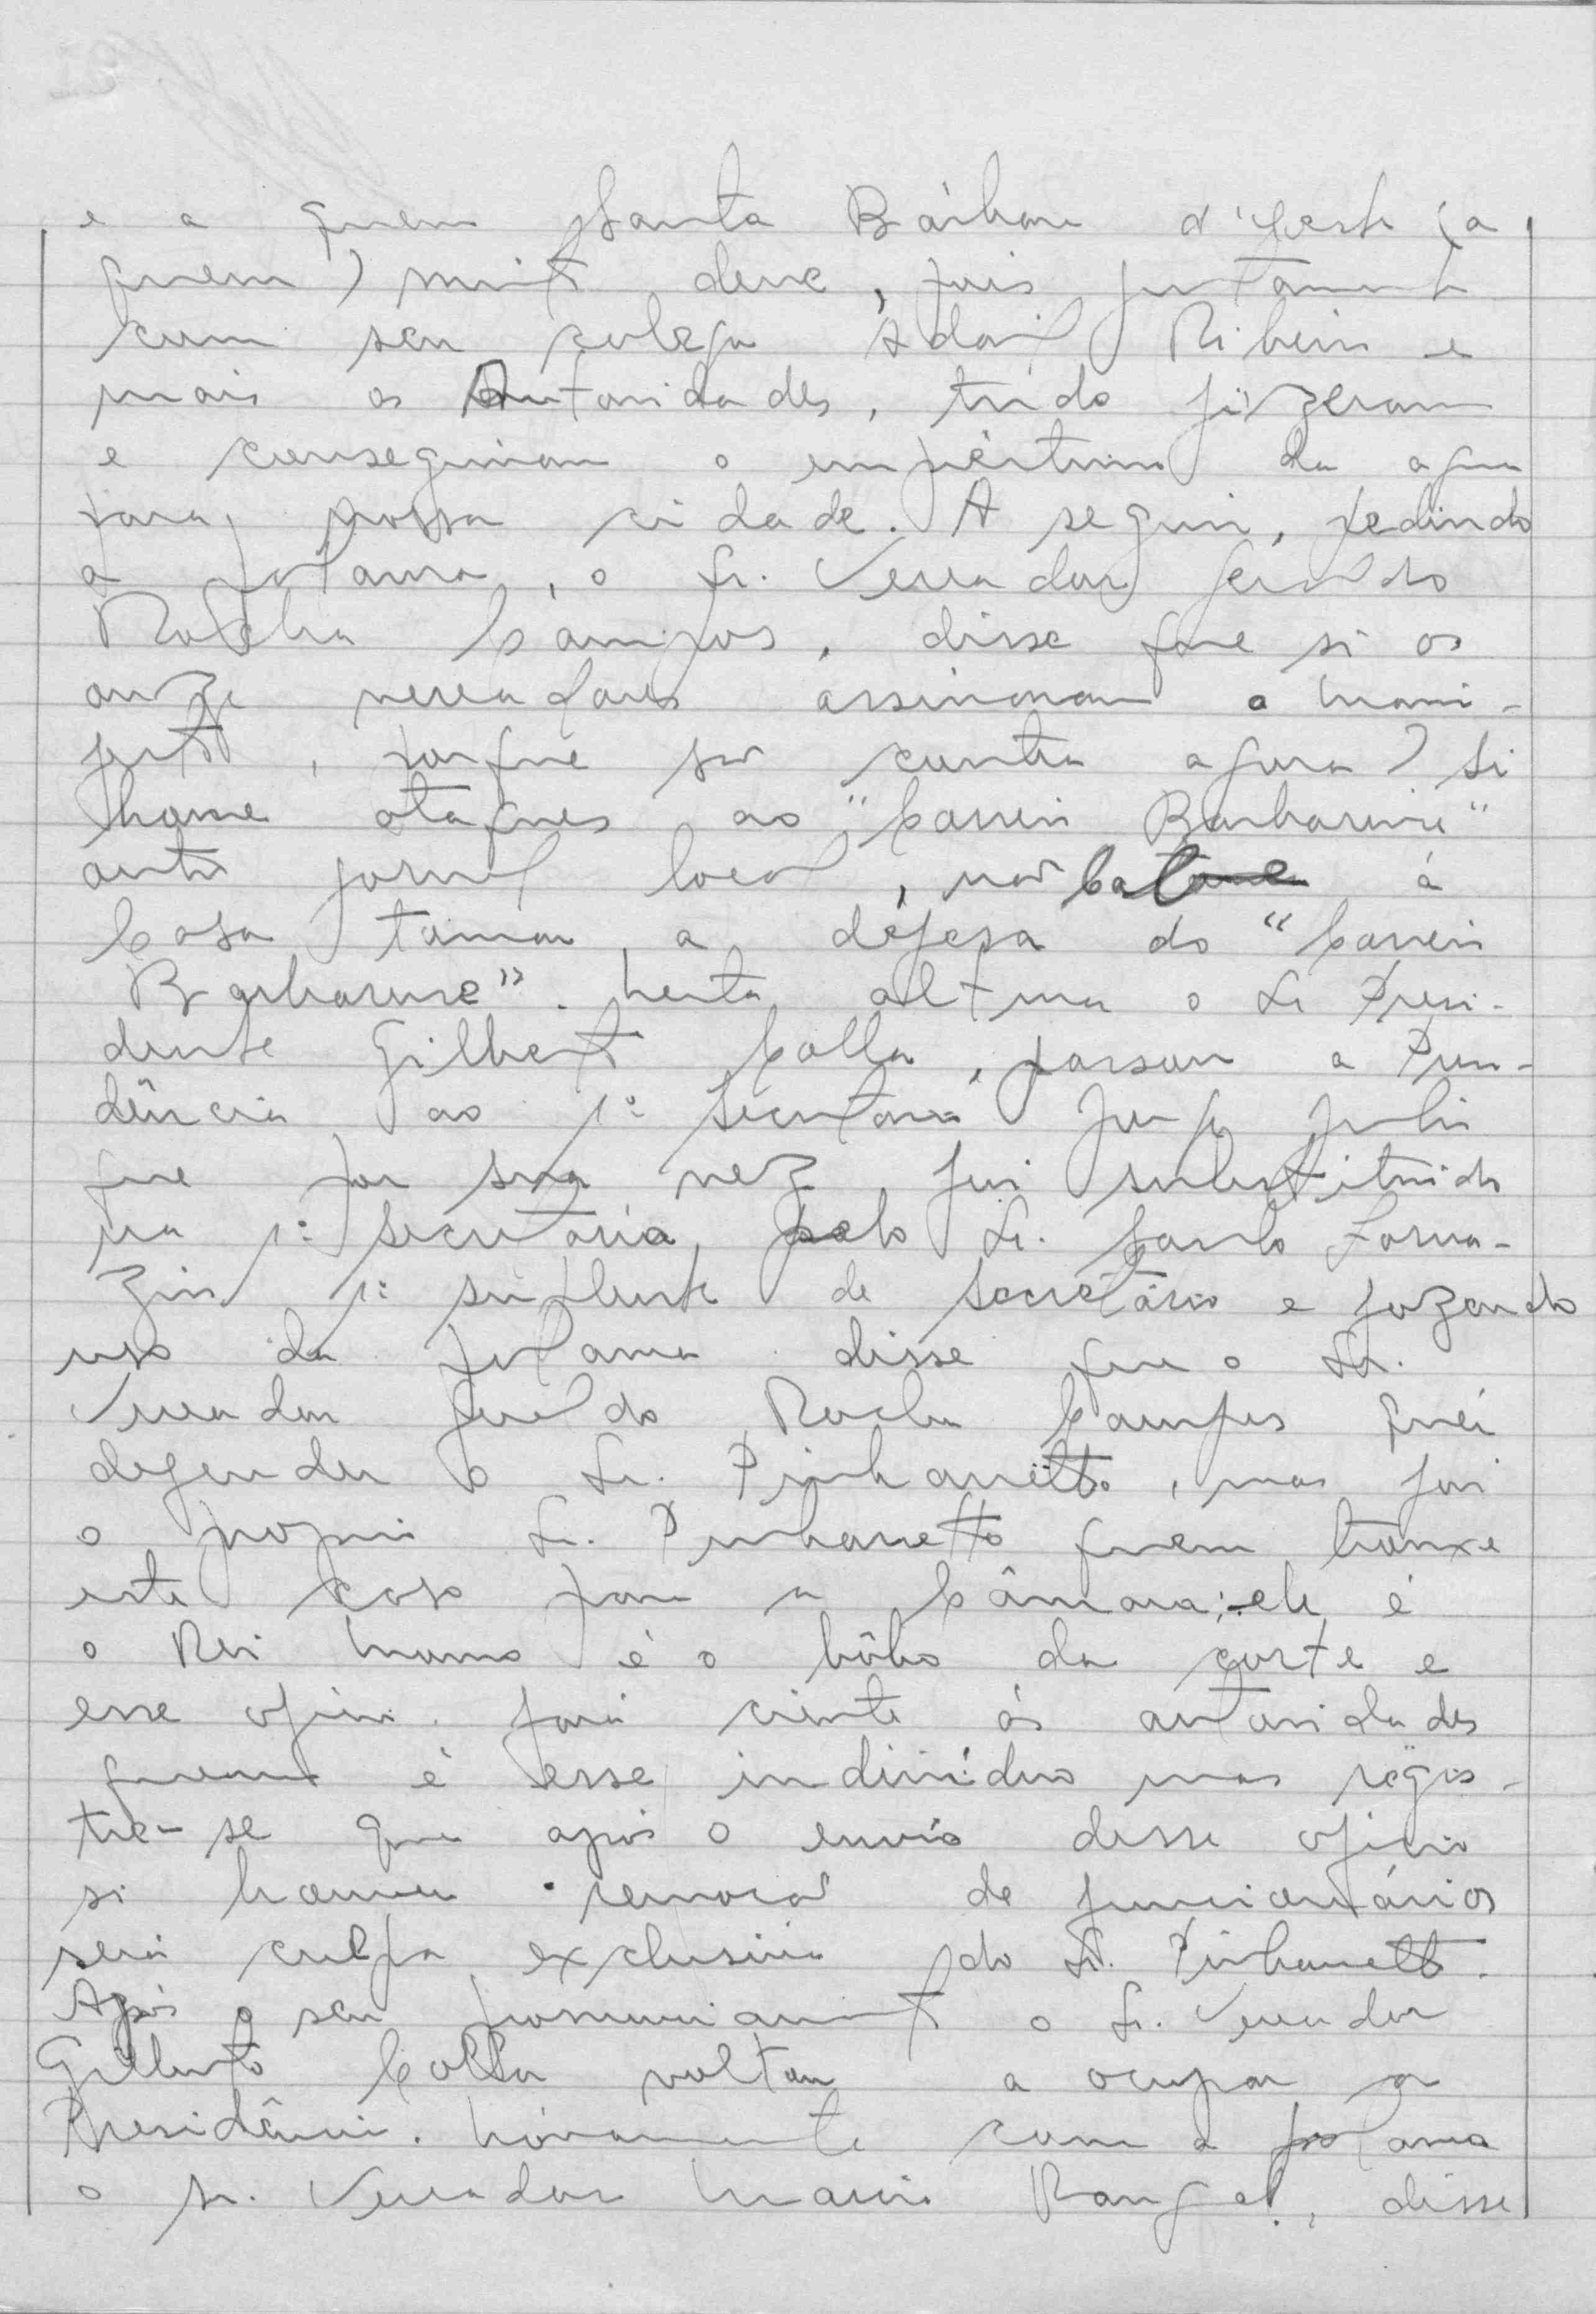 e a quem Santa Bárbara d'Oeste (a
quem) muito deve, pois juntamente
com seu colega Adail Ribeiro e
mais as Autoridades, tudo fizeram
e conseguiram o empréstimo da agua
para nossa cidade. A seguir, pedindo
a palavra, o Sr. Vereador Geraldo
Rocha Campos, disse que si os
onze vereadores assinaram o mani-
festo, porque ser contra agora? Si
houve ataques ao "Correio Barbarense"
outro jornal local, não cabe á
Casa tomar a defesa do "Correio
Barbarense". Nesta altura o Sr Presi-
dente Gilberto Colla, passou a Presi-
dência ao 1º Secretario Jorge Julio
que por sua vez foi substituido
na 1ª Secretária pelo Sr. Santo Forna-
zin 1º suplente de Secretário e fazendo
uso da palavra disse que o Sr.
Vereador Geraldo Rocha Campos quer
defender o Sr. Pinhanetto, mas foi
o proprio Sr. Pinhanetto quem trouxe
este caso para a Câmara; ele é
o Rei Momo é o bôbo da corte e
esse oficio fará ciente ás autoridades
quem é esse individuo mas regis-
tre-se que após o envio desse oficio
si houver remoção de funcionários
será culpa exclusiva do Sr. Pinhanetto.
Após o seu pronunciamento o Sr. Vereador
Gilberto Colla voltou a ocupar a
Presidência. Nóvamente com a palavra
o Sr. Vereador Mario Rangel, disse